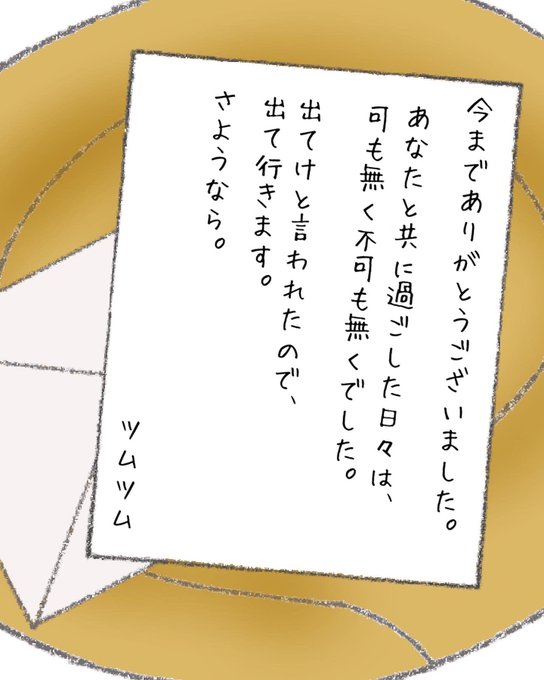 今までありがとうございました。
あなたと共に過ごした日々は、
可も無く不可も無くでした。
出てけと言われたので、
出て行きます。
さようなら。
ツムツム